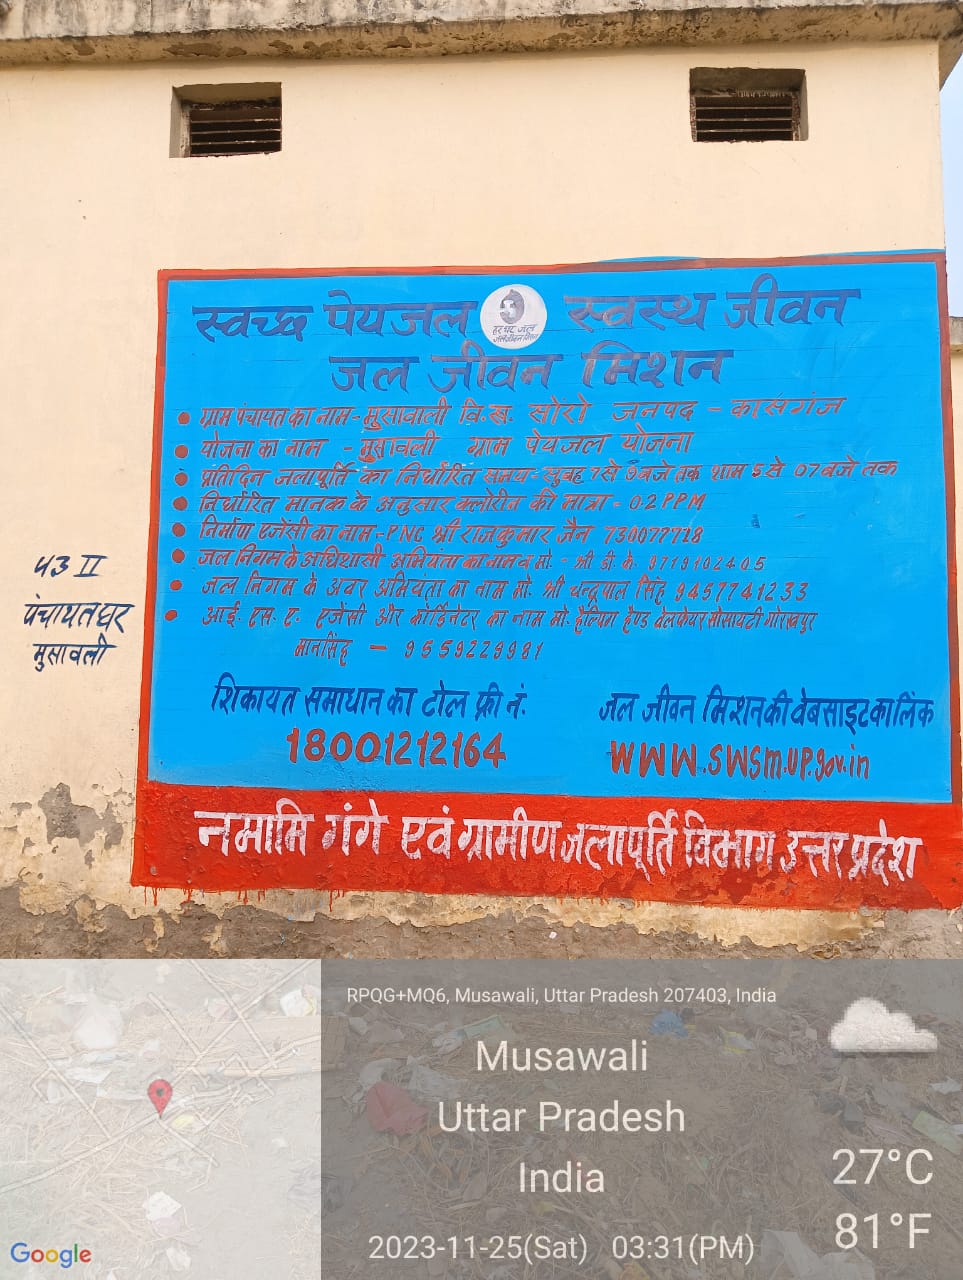 स्वच्छ पेयजल स्वस्थ जीवन
हर घर जल
जल जीवन मिशन
जल जीवन मिशन
• ग्राम पंचायत का नाम - मुसावाली वि.ख. सोरो जनपद - कासगंज
• योजना का नाम - मुसावली ग्राम पेयजल योजना
• प्रतिदिन जलापूर्ति का निर्धारित समय - सुबह 7 से बजे तक शाम 5 से 07 बजे तक
• निर्धारित मानक के अनुसार क्लोरीन की मात्रा - 0.2 PPM
• निर्माण एजेंसी का नाम - PNC श्री राजकुमार जैन
• जल निगम के अधिशासी अभियंता का नाम व मो. - श्री डी. के. 9719102405
• जल निगम के अवर अभियंता का नाम मो. श्री चन्द्रपाल सिंह 9457741233
• आई. एस. ए. एजेंसी और कोर्डिनेटर का नाम मो. हैल्पिंग हैण्ड वेलफेयर सोसायटी गोरखपुर
मानसिंह - 9559229981
शिकायत समाधान का टोल फ्री नं.
18001212164
जल जीवन मिशन की वेबसाइट का लिंक
WWW.SWSM.UP.gov.in
नमामि गंगे एवं ग्रामीण जलापूर्ति विभाग उत्तर प्रदेश
पंचायत घर
मुसावली
RPQG+MQ6, Musawali, Uttar Pradesh 207403, India
Musawali
Uttar Pradesh
India
2023-11-25(Sat) 03:31(PM)
27°C
81°F
Google